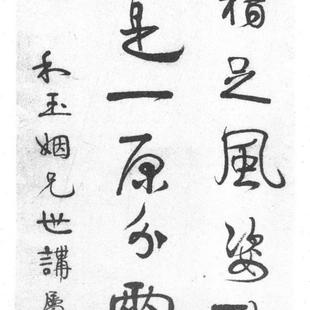 楷足風姿
是一原分
和玉姻兄世講屬